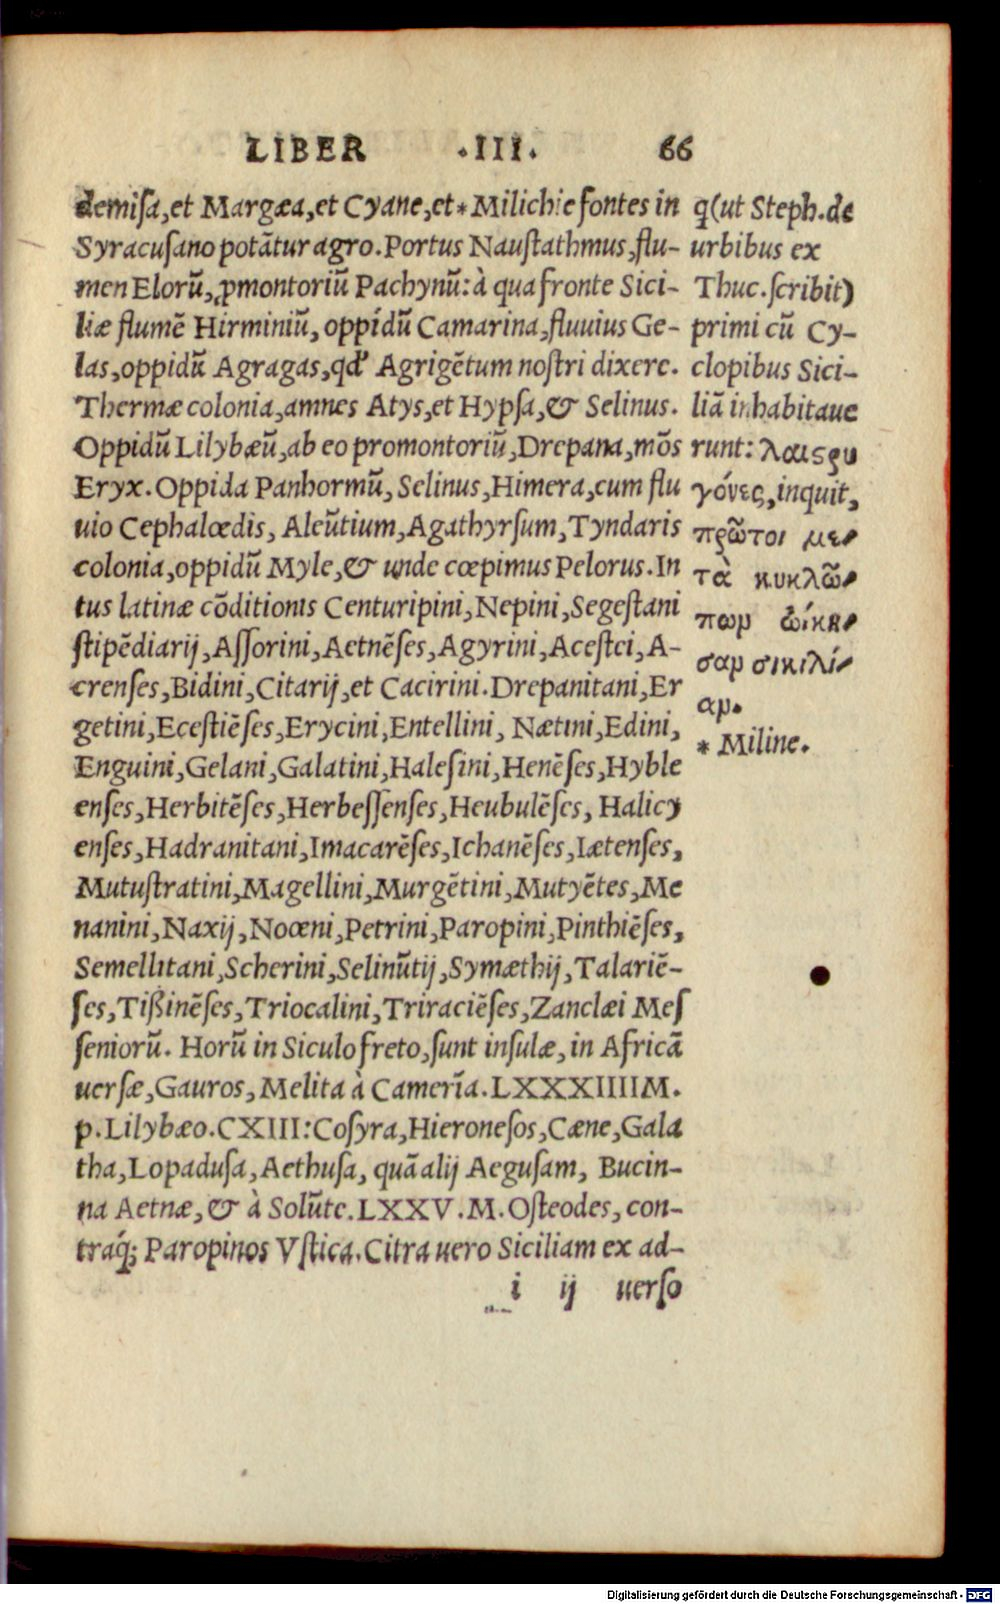 LIBER .III. 66
demiſa,et Margæa,et Cyane,et*Milichie fontes in
Syracuſano potātur agro.Portus Nauſtathmus,flu-
men Elorū,ꝓmontoriū Pachynū:à qua fronte Sici-
liæ flumē Hirminiū, oppidū Camarina,fluuius Ge-
las,oppidū Agragas,qđ Agrigētum noſtri dixere.
Thermæ colonia,amnes Atys,et Hypſa,& Selinus.
Oppidū Lilybæū,ab eo promontoriū,Drepana,mōs
Eryx.Oppida Panhormū, Selinus,Himera,cum flu
uio Cephalœdis, Aleūtium,Agathyrſum,Tyndaris
colonia,oppidū Myle,& unde cœpimus Pelorus.In
tus latinæ cōditionis Centuripini,Nepini,Segeſtani
ſtipēdiarij,Aſſorini,Aetnēſes,Agyrini,Aceſtei,A-
crenſes,Bidini,Citarij,et Cacirini.Drepanitani,Er
getini,Eceſtiēſes,Erycini,Entellini, Nætini,Edini,
Enguini,Gelani,Galatini,Haleſini,Henēſes,Hyble
enſes,Herbitēſes,Herbeſſenſes,Heubulēſes, Halicy
enſes,Hadranitani,Imacarēſes,Ichanēſes,Iætenſes,
Mutuſtratini,Magellini,Murgētini,Mutyētes,Me
nanini,Naxij,Noœni,Petrini,Paropini,Pinthiēſes,
Semellitani,Scherini,Selinūtij,Symæthij,Talariē-
ſes,Tißinēſes,Triocalini,Triraciēſes,Zanclæi Meſ
ſeniorū. Horū in Siculo freto,ſunt inſulæ,in Africā
uerſæ,Gauros,Melita à Camerīa.LXXXIIIIM.
p.Lilybæo.CXIII:Coſyra,Hieroneſos,Cæne,Gala
tha,Lopaduſa,Aethuſa, quā alij Aeguſam, Bucin-
na Aetnæ,& à Solūte.LXXV.M.Oſteodes, con-
traq́; Paropinos Vſtica.Citra uero Siciliam ex ad-
i ij uerſo
q̃(ut Steph.de
urbibus ex
Thuc.ſcribit)
primi cū Cy-
clopibus Sici-
liā inhabitaue
runt: λαιςρυ
γόνες,inquit,
πρῶτοι με-
τὰ κυκλῶ-
πωμ ᾤκη-
σαμ σικιλί-
αμ.
* Miline.
Digitalisierung gefördert durch die Deutsche Forschungsgemeinschaft - DFG